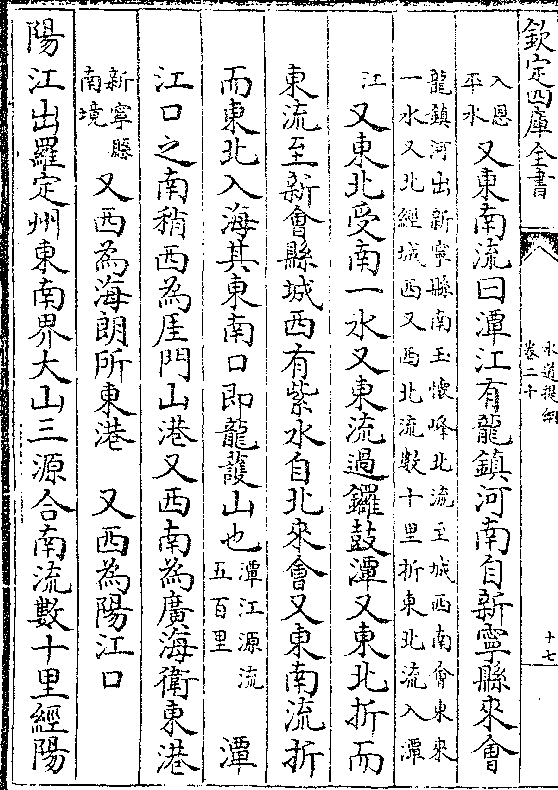 欽定四庫全書
水道提綱
卷二十
十七
入恩
平水又東南流曰潭江有龍鎮河南自新寧縣來會
龍鎮河出新寧縣南玉懷峰北流至城西南會東來
一水又北經城西又西北流數十里折東北流入潭
江又東北受南一水又東流過鑼鼓潭又東北折而
東流至新會縣城西有紫水自北來會又東南流折
而東北入海其東南口即龍護山也潭江源流
五百里潭
江口之南稍西為厓門山港又西南為廣海衛東港
新寧縣
南境又西為海朗所東港 又西為陽江口
陽江出羅定州東南界大山三源合南流數十里經陽